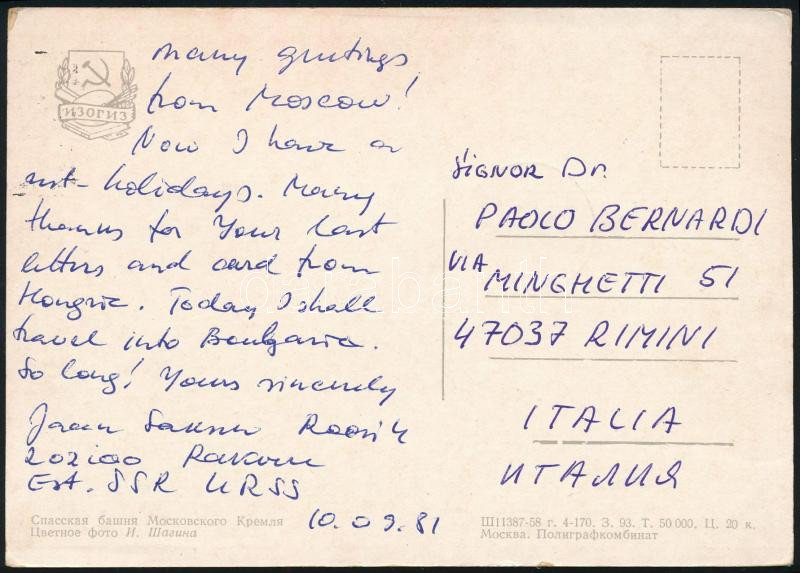 ИЗОГИЗ
Many greetings
from Moscow!
Now I have a
rest-holidays. Many
thanks for Your last
letters and card from
Hongrie. Today I shall
travel into Boulgaria.
So long! Yours sincerely
Jaan
202100 Rakvere
Est. SSR URSS
10.09.81
SIGNOR Dr.
PAOLO BERNARDI
VIA MINGHETTI 51
47037 RIMINI
ITALIA
ИТАЛИЯ
Спасская башня Московского Кремля
Цветное фото И. Шагина
Ш11387-58 г. 4-170. З. 93. Т. 50 000. Ц. 20 к.
Москва. Полиграфкомбинат